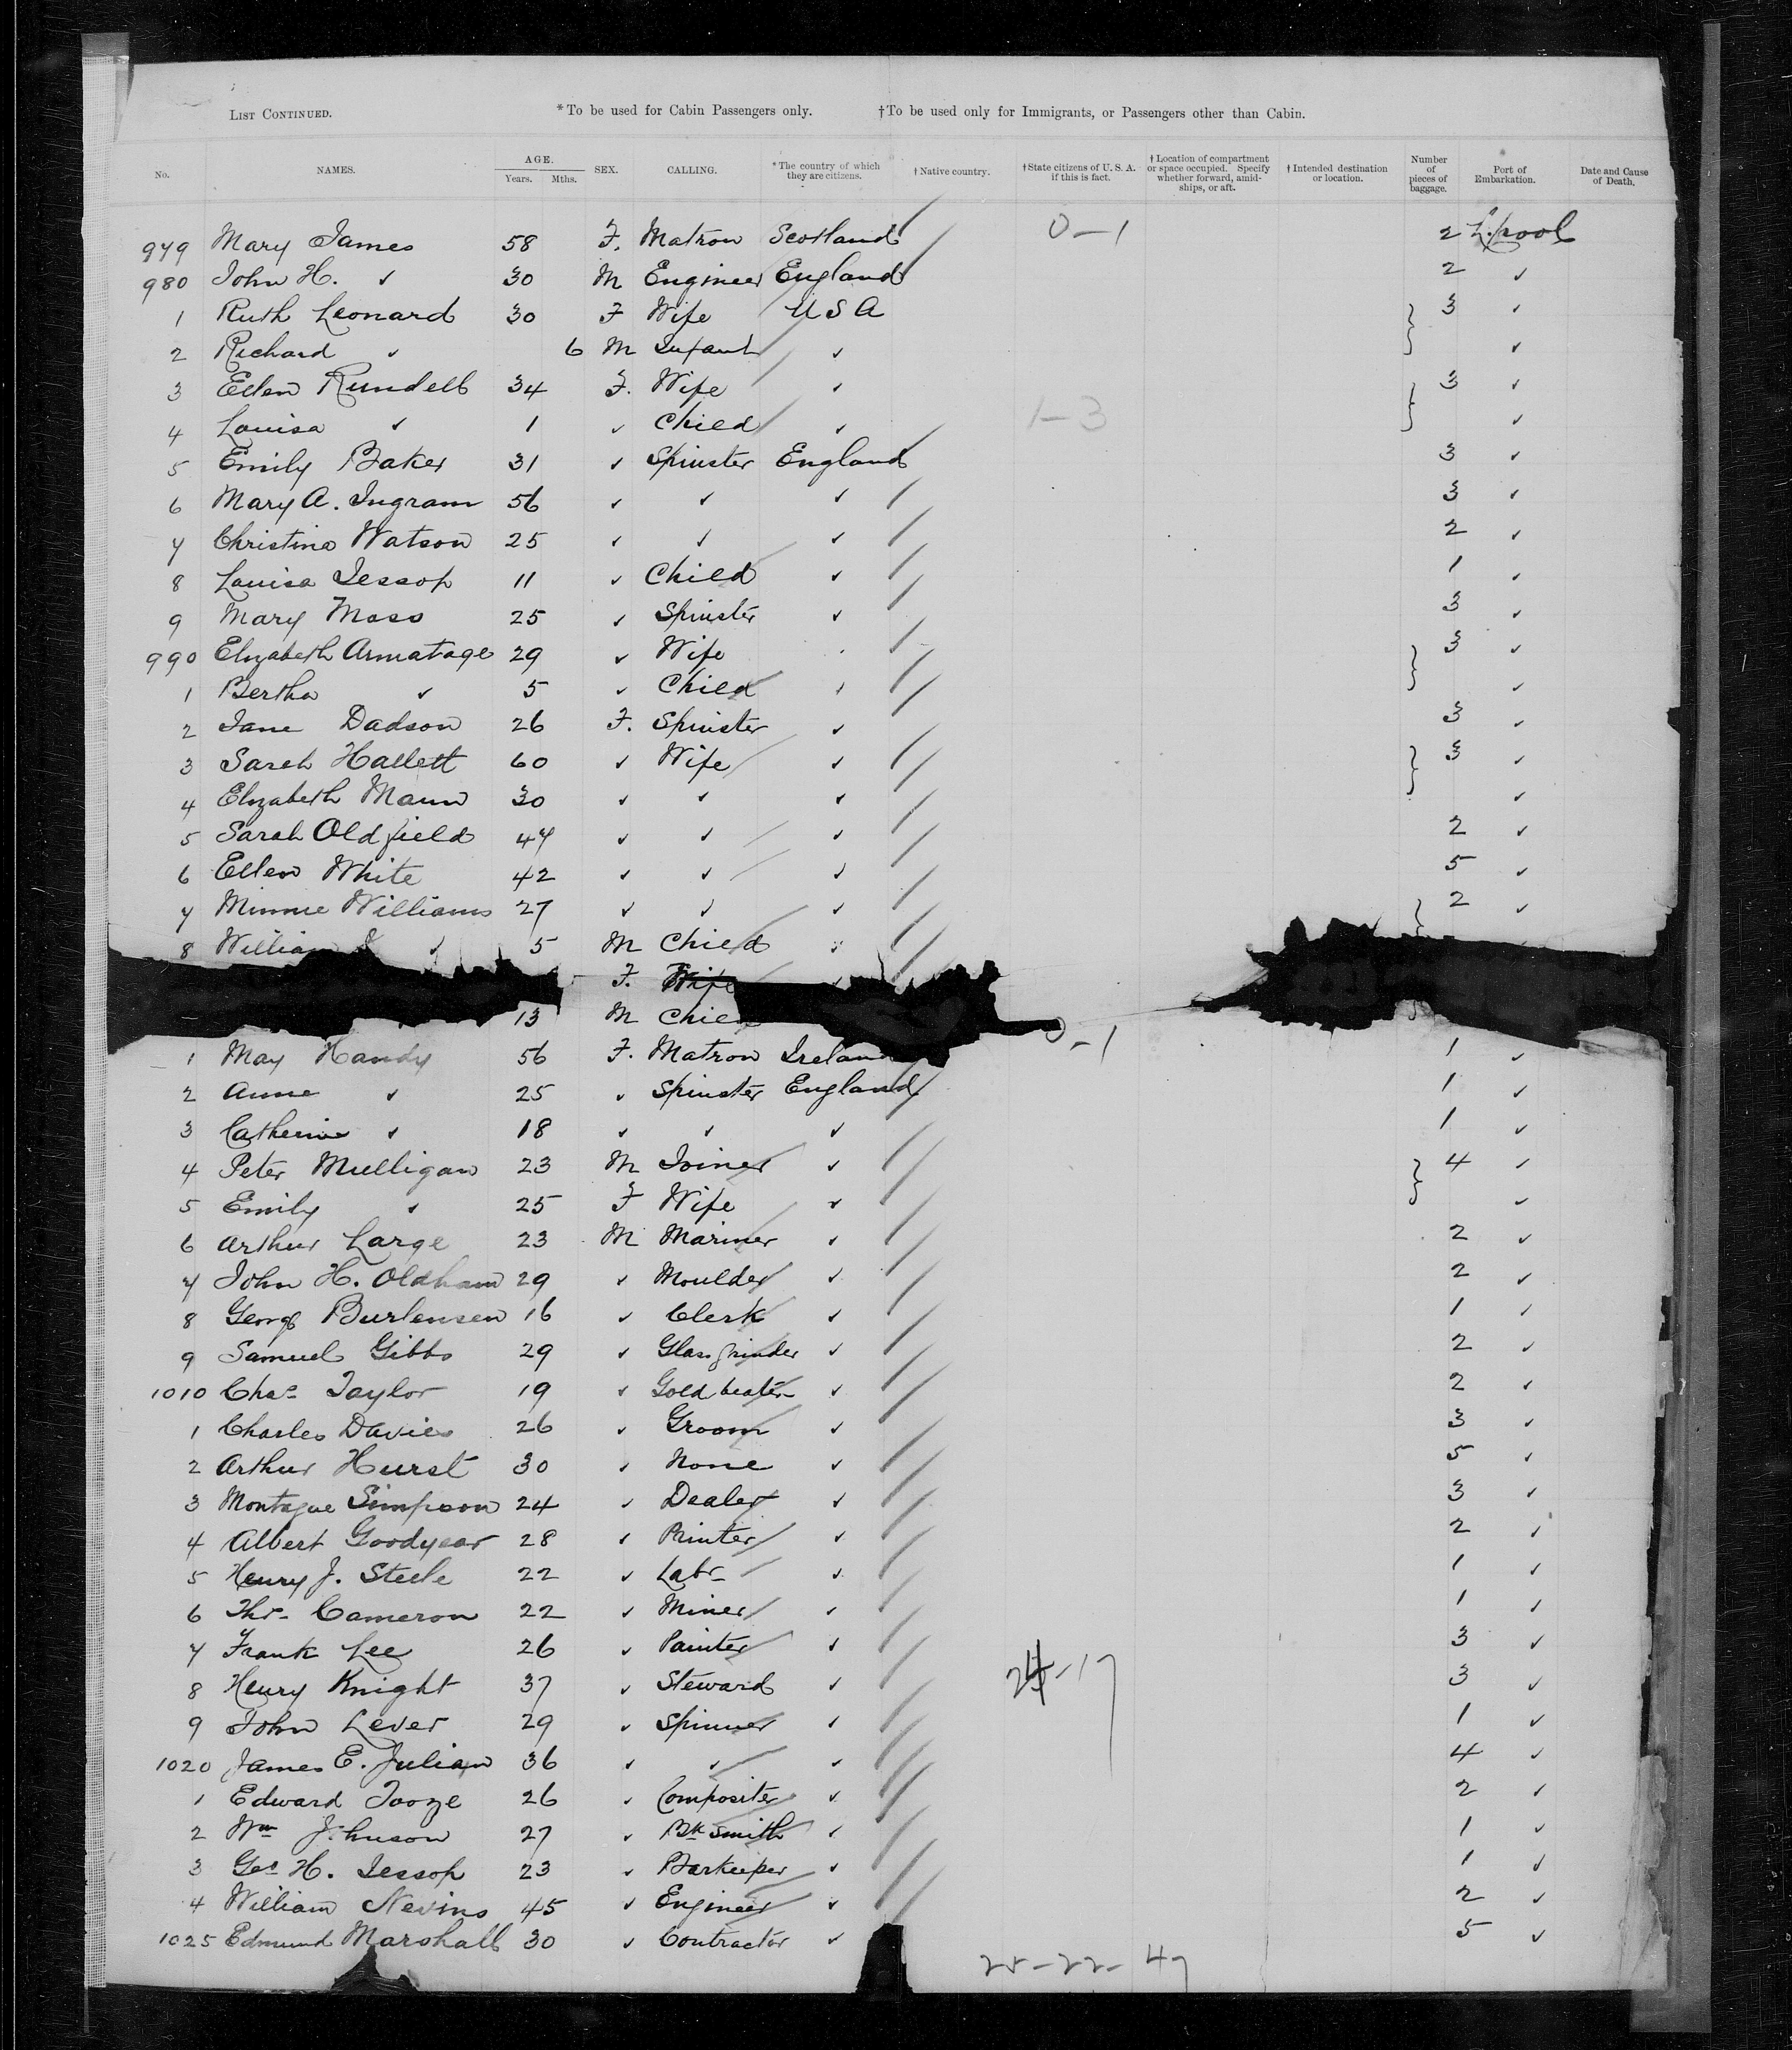 List Continued. * To be used for Cabin Passengers only. † To be used only for Immigrants, or Passengers other than Cabin.
No. NAMES. AGE. Years. Mths. SEX. CALLING. * The country of which they are citizens. † Native country. † State citizens of U. S. A. if this is fact. † Location of compartment or space occupied. Specify whether forward, amidships, or aft. † Intended destination or location. Number of pieces of baggage. Port of Embarkation. Date and Cause of Death.
979 Mary James 58 F. Matron Scotland 0-1 2 L.pool
980 John H. ✓ 30 M Engineer England 2 ✓
1 Ruth Leonard 30 F Wife U S A 3 ✓
2 Richard ✓ 6 M Infant ✓ ✓
3 Ellen Rundell 34 F. Wife ✓ 3 ✓
4 Louisa ✓ 1 ✓ Child ✓ 1-3 ✓
5 Emily Baker 31 ✓ Spinster England 3 ✓
6 Mary A. Ingram 56 ✓ ✓ ✓ 3 ✓
7 Christina Watson 25 ✓ ✓ ✓ 2 ✓
8 Louisa Jessop 11 ✓ Child ✓ 1 ✓
9 Mary Moss 25 ✓ Spinster ✓ 3 ✓
990 Elizabeth Armatage 29 ✓ Wife 3 ✓
1 Bertha ✓ 5 ✓ Child ✓ ✓
2 Jane Dadson 26 F. Spinster ✓ 3 ✓
3 Sarah Hallett 60 ✓ Wife ✓ 3 ✓
4 Elizabeth Mann 30 ✓ ✓ ✓ ✓
5 Sarah Oldfield 47 ✓ ✓ ✓ 2 ✓
6 Ellen White 42 ✓ ✓ ✓ 5 ✓
7 Minnie Williams 27 ✓ ✓ ✓ 2 ✓
8 William ✓ 5 M Child
F. Wife
13 M Child 0-1
1 May Handy 56 F. Matron Ireland 1 ✓
2 Anne ✓ 25 ✓ Spinster England 1 ✓
3 Catherine ✓ 18 ✓ ✓ ✓ 1 ✓
4 Peter Mulligan 23 M Joiner ✓ 4 ✓
5 Emily ✓ 25 F Wife ✓ ✓
6 Arthur Large 23 M Mariner ✓ 2 ✓
7 John H. Oldham 29 ✓ Moulder ✓ 2 ✓
8 George Burlensen 16 ✓ Clerk ✓ 1 ✓
9 Samuel Gibbs 29 ✓ Glass grinder ✓ 2 ✓
1010 Chas Taylor 19 ✓ Gold beater ✓ 2 ✓
1 Charles Davies 26 ✓ Groom ✓ 3 ✓
2 Arthur Hurst 30 ✓ None ✓ 5 ✓
3 Montague Simpson 24 ✓ Dealer ✓ 3 ✓
4 Albert Goodyear 28 ✓ Printer ✓ 2 ✓
5 Henry J. Steele 22 ✓ Labr ✓ 1 ✓
6 Thos Cameron 22 ✓ Miner ✓ 1 ✓
7 Frank Lee 26 ✓ Painter ✓ 3 ✓
8 Henry Knight 37 ✓ Steward ✓ 3 ✓
9 John Lever 29 ✓ Spinner ✓ 1 ✓
1020 James E. Julian 36 ✓ ✓ ✓ 4 ✓
1 Edward Tooze 26 ✓ Compositer ✓ 2 ✓
2 Wm Johnson 27 ✓ Bk Smith ✓ 1 ✓
3 Geo H. Jessop 23 ✓ Barkeeper ✓ 1 ✓
4 William Nevins 45 ✓ Engineer ✓ 2 ✓
1025 Edmund Marshall 30 ✓ Contractor ✓ 5 ✓
25-22-47